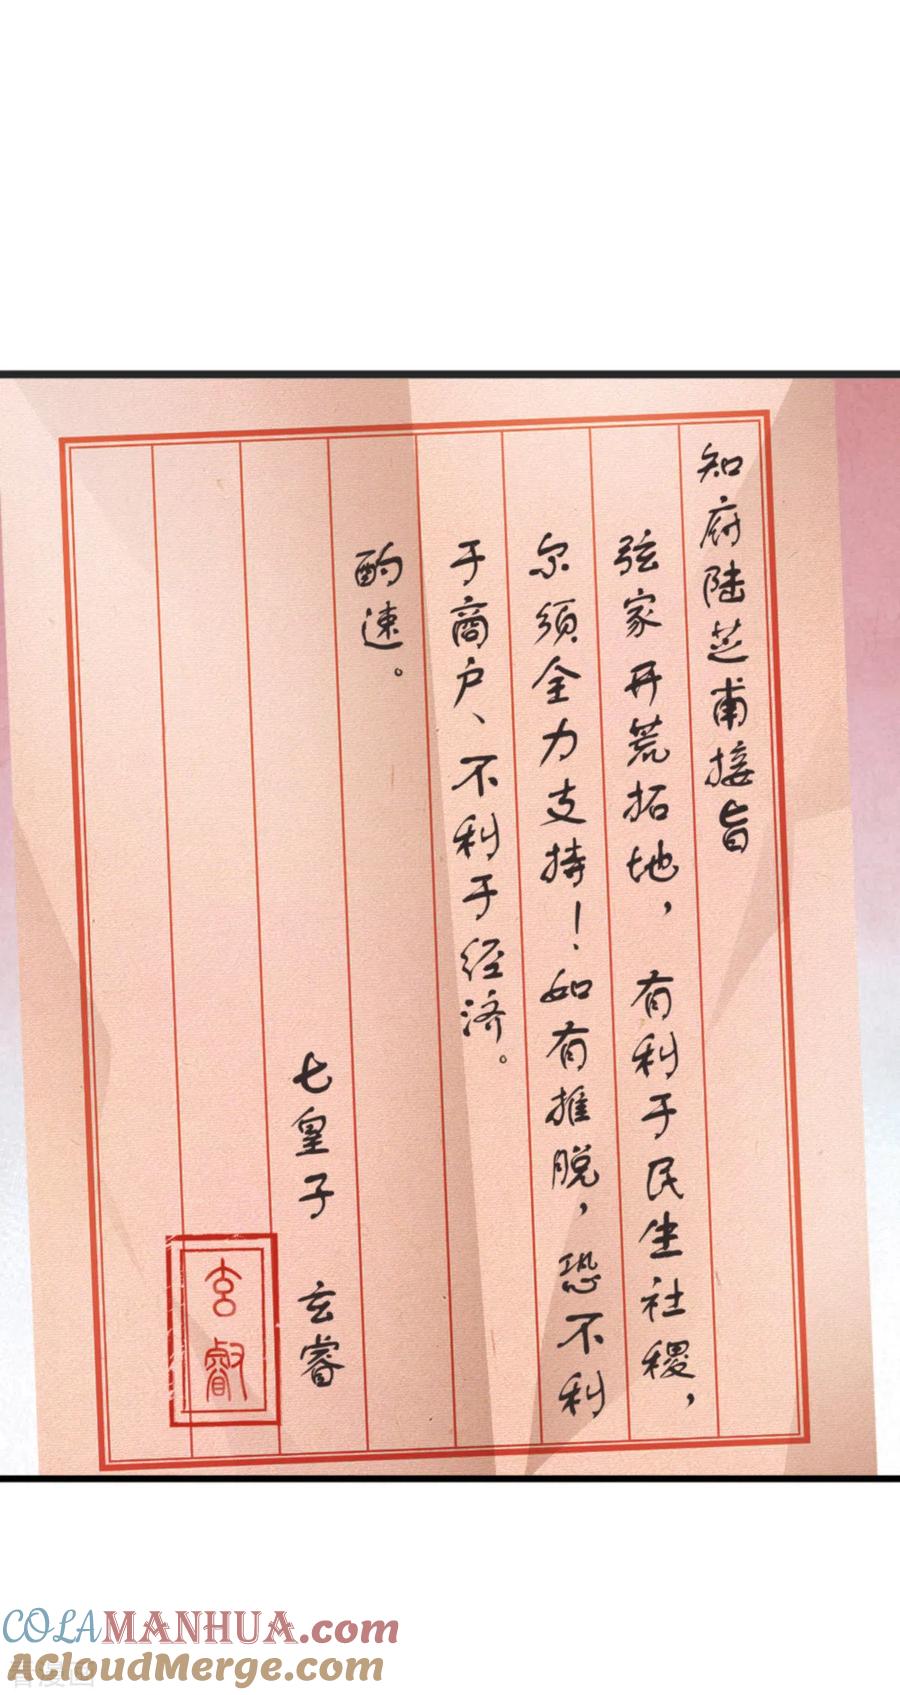 知府陆芝甫接旨
弦家开荒拓地，有利于民生社稷，
尔须全力支持！如有推脱，恐不利
于商户、不利于经济。
酌速。
七皇子 玄睿
玄叡
COLAMANHUA.com
ACloudMerge.com